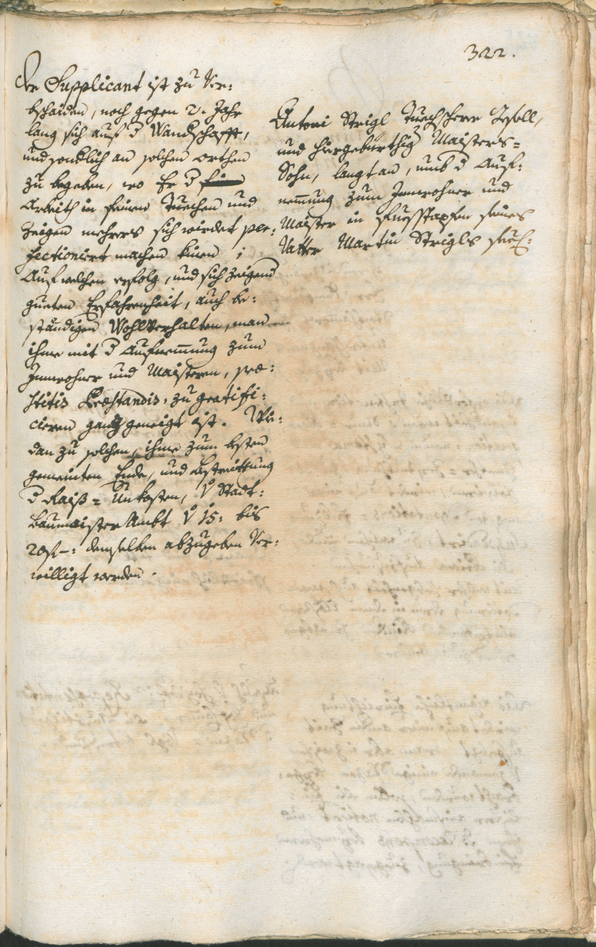 322.
Der Supplicant ist zu Ver:
bschaiden, noch gegen 2. Jahr
lang sich auf d Wandschafft,
und sondlich an solchen orthen
zu begeben, wo Er d
Arbeith in feinen Tuechen und
Zeigen mehrers sich wirdet per:
fectioniert machen könen ;
Auf welchen erfolg, und sich zeigend
gueten Erfahrenheit, auch be:
ständigen Wohlverhalten, man
ihme mit d Aufnemmung zum
Innwohner und Maistern, præ:
stitis Præstandis, zu gratifi:
cieren ganz geneigt ist.
dan zu solchen, ihme zum besten
gemeinten Ende, und bestreittung
d Raiß = Unkosten, Stadt:
Baumaister Ambt 15: bis
20 f –: demselben abzugeben Ver:
willigt worden.
Antoni Strigl Tuechscherer Gsell,
und hiergebürthig Maisters=
Sohn, langt an, umb d Auf:
nemmung zum Innwohner und
Maister in Fuesstapfen seines
Vatter Martin Strigls